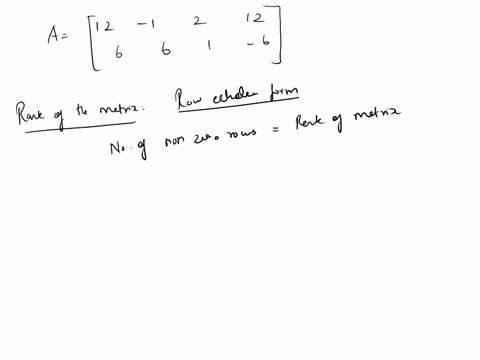 A = [ 12 -1 2 12
6 6 1 -6 ]
Rank of the matrix: Row echelon form
No. of non zero rows = Rank of matrix